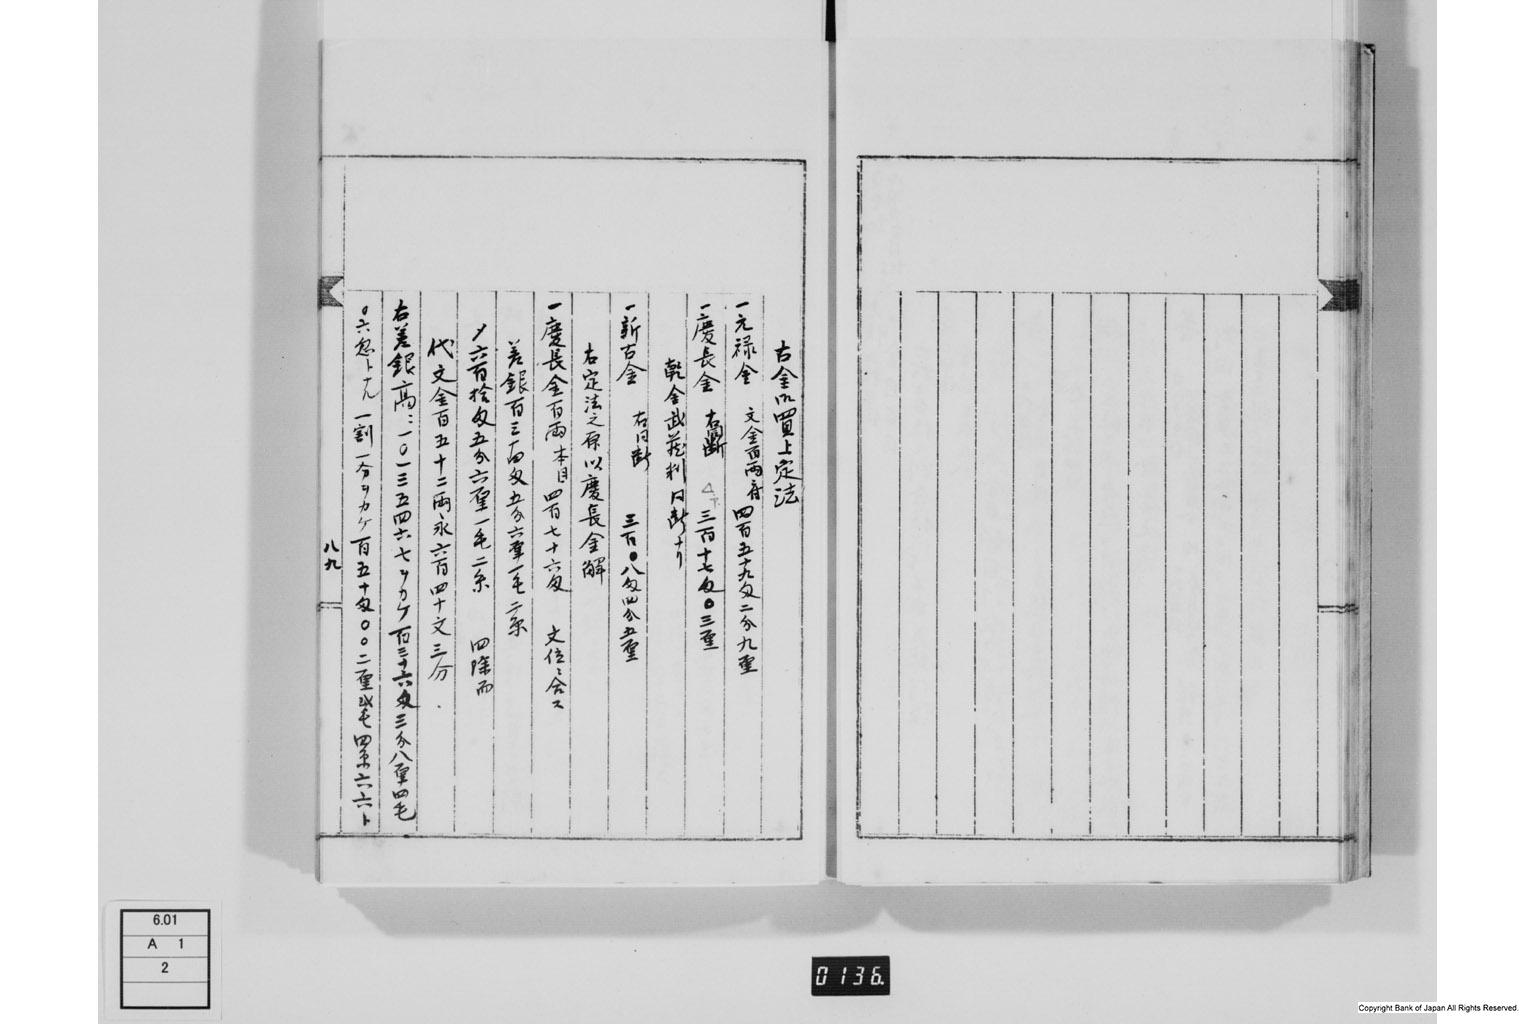 古金御買上定法
一元禄金 文金百両ニ付 四百五十九匁二分九厘
一慶長金 右同断 三百十七匁〇三厘
乾金武蔵判同断ナリ
一新古金 右同断 三百〇八匁四分五厘
右定法之原以慶長金解
一慶長金百両本目四百七十六匁 文位ニ合ス
差銀百三十四匁五分六厘一毛二糸
〆六百拾匁五分六厘一毛二糸 四除而
代文金百五十二両永六百四十文三分
右差銀高ニ一〇一三五四六七ヲカケ百三十六匁三分八厘四毛
〇六忽トナル 一割一分ヲカケ百五十匁〇〇二厘弐毛四糸六六ト
八九
6.01
A 1
2
0136.
Copyright Bank of Japan All Rights Reserved.